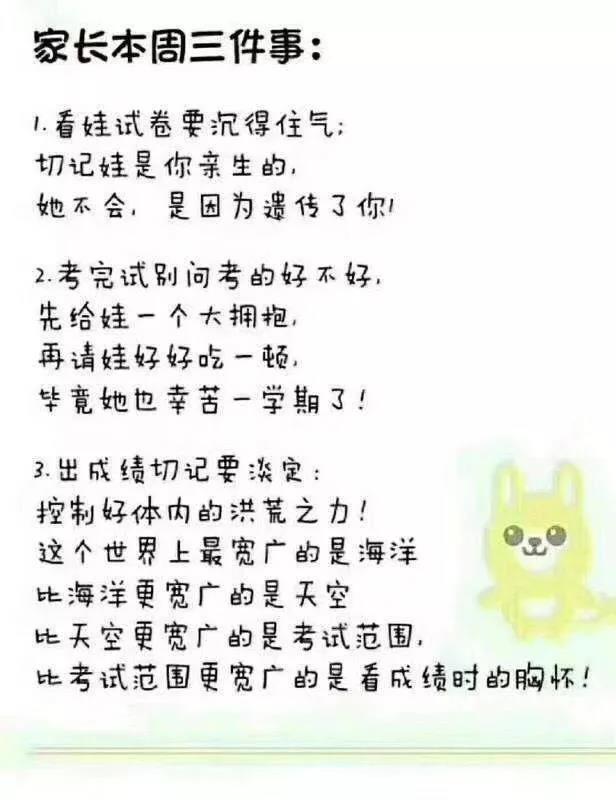 家长本周三件事：
1.看娃试卷要沉得住气；
切记娃是你亲生的，
她不会，是因为遗传了你！
2.考完试别问考的好不好，
先给娃一个大拥抱，
再请娃好好吃一顿，
毕竟她也幸苦一学期了！
3.出成绩切记要淡定：
控制好体内的洪荒之力！
这个世界上最宽广的是海洋
比海洋更宽广的是天空
比天空更宽广的是考试范围，
比考试范围更宽广的是看成绩时的胸怀！